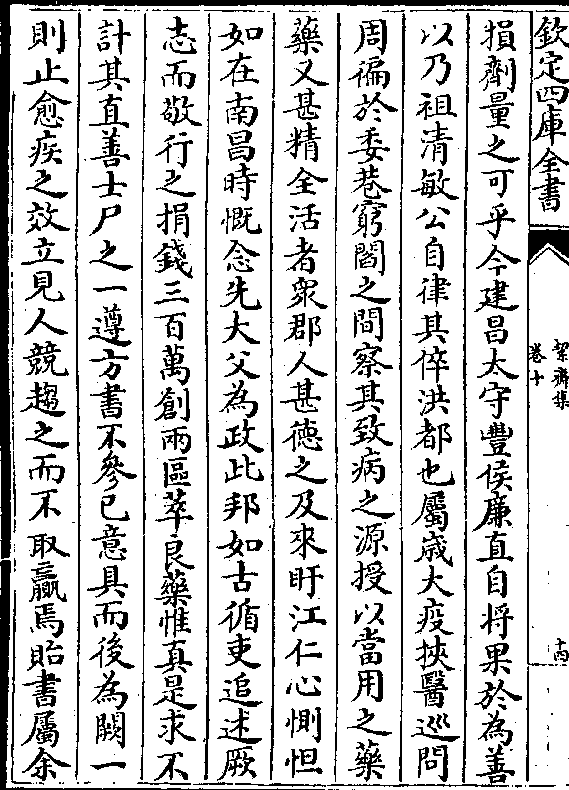 欽定四庫全書
絜齋集
卷十
十四
損劑量之可乎今建昌太守豐侯廉直自将果於為善
以乃祖清敏公自律其倅洪都也屬歲大疫挾醫巡問
周徧於委巷窮閻之間察其致病之源授以當用之藥
藥又甚精全活者衆郡人甚徳之及來盱江仁心惻怛
如在南昌時慨念先大父為政此邦如古循吏追述厥
志而敬行之捐錢三百萬創兩區萃良藥惟真是求不
計其直善士尸之一遵方書不參已意具而後為闕一
則止愈疾之效立見人競趨之而不取贏焉貽書屬余